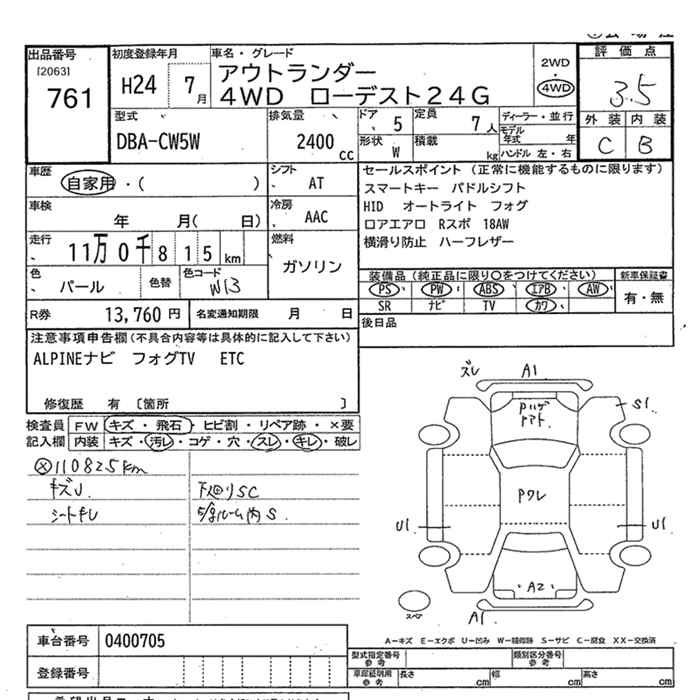 出品番号 初度登録年月 車名・グレード 評価点
[2063] 2WD
761 H24 7月 アウトランダー 4WD 3.5
4WD ローデスト24G
外装 内装
型式 排気量 ドア 5 定員 7人 ディーラー・並行
DBA-CW5W 2400cc モデル年式 年 C B
形状 W 積載 kg ハンドル 左・右
車歴 シフト セールスポイント (正常に機能するものに限ります)
自家用・( ) AT スマートキー パドルシフト
車検 冷房 HID オートライト フォグ
年 月( 日) AAC ロアエアロ Rスポ 18AW
走行 燃料 横滑り防止 ハーフレザー
11万0千815km ガソリン
装備品(純正品に限り〇をつけてください) 新車保証書
色 色替 色コード PS PW ABS エアB AW 有・無
パール W13 SR ナビ TV カワ
R券 13,760円 名変通知期限 月 日 後日品
注意事項申告欄(不具合内容等は具体的に記入して下さい)
ALPINEナビ フォグTV ETC
修復歴 有 〔箇所 〕
検査員 FW キズ・飛石・ヒビ割・リペア跡・×要
記入欄 内装 キズ・汚レ・コゲ・穴・スレ・キレ・破レ
110825km
キズJ 下廻りSC
シートキレ ルーム内S
ズレ A1
Pハゲ S1
Pワレ
U1 U1
A2
スペア A1
A-キズ E-エクボ U-凹み W-補修跡 S-サビ C-腐食 XX-交換済
車台番号 0400705
型式指定番号 参考 類別区分番号 参考
登録番号 車庫証明用 参考 長さ cm 幅 cm 高さ cm